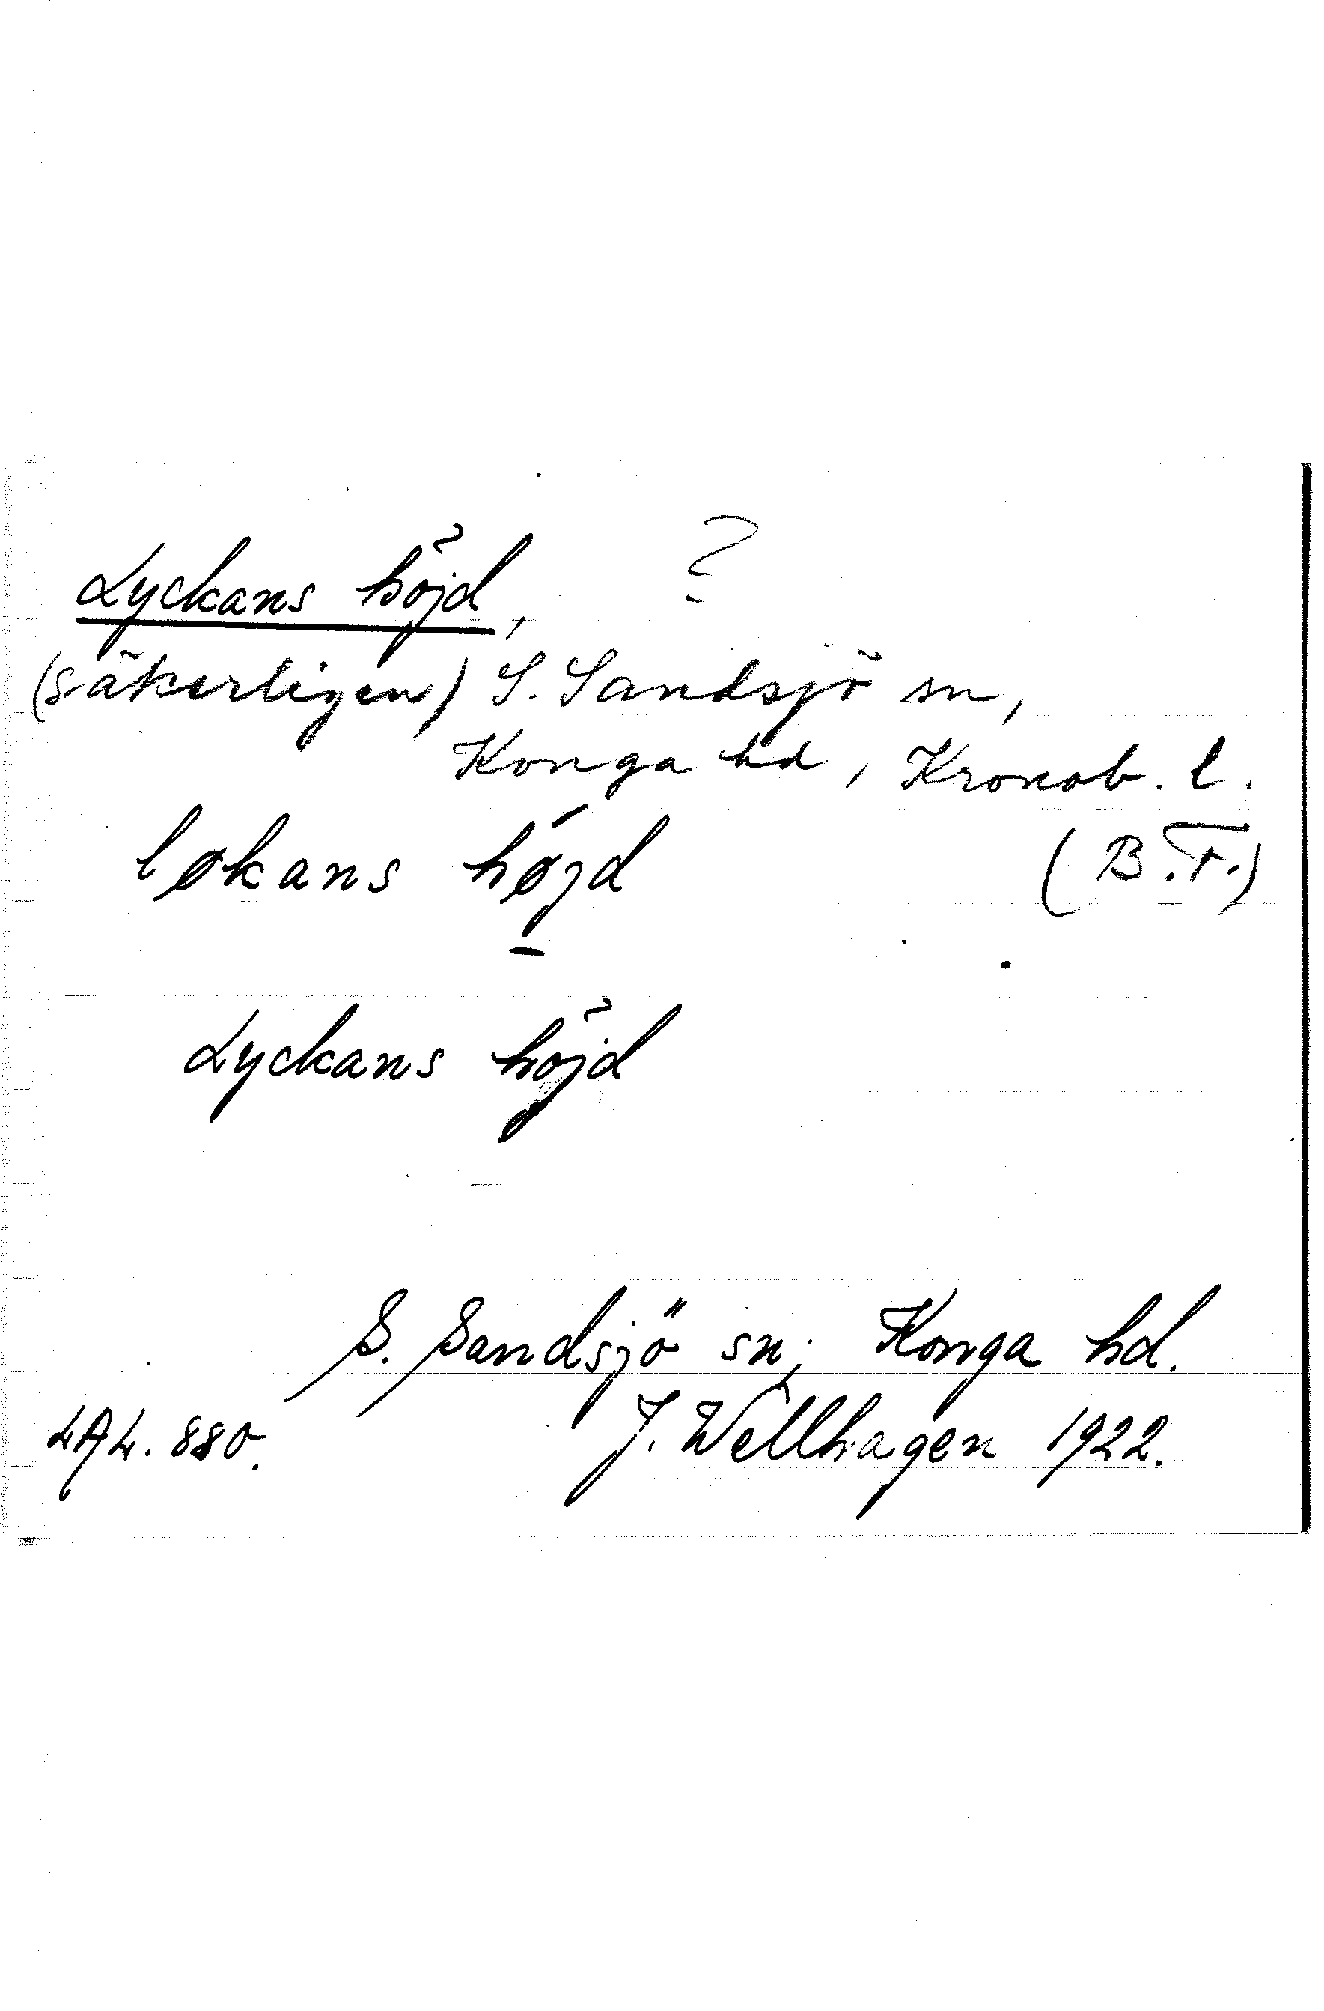 Lyckans höjd, ?
(säkerligen) S. Sandsjö sn,
Konga hd, Kronob. l.
løkans højd (B.F.)
Lyckans höjd
S. Sandsjö sn; Konga hd.
LAL. 880. J. Wellhagen 1922.